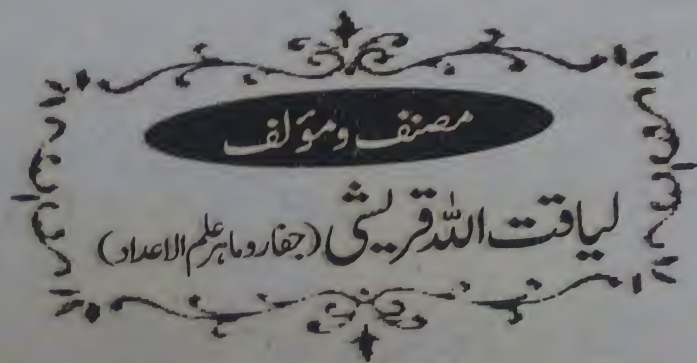 مصنف و مؤلف
لیاقت اللہ قریشی (جفار و ماہر علم الاعداد)